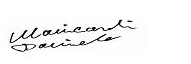 Maricardi
Daniele